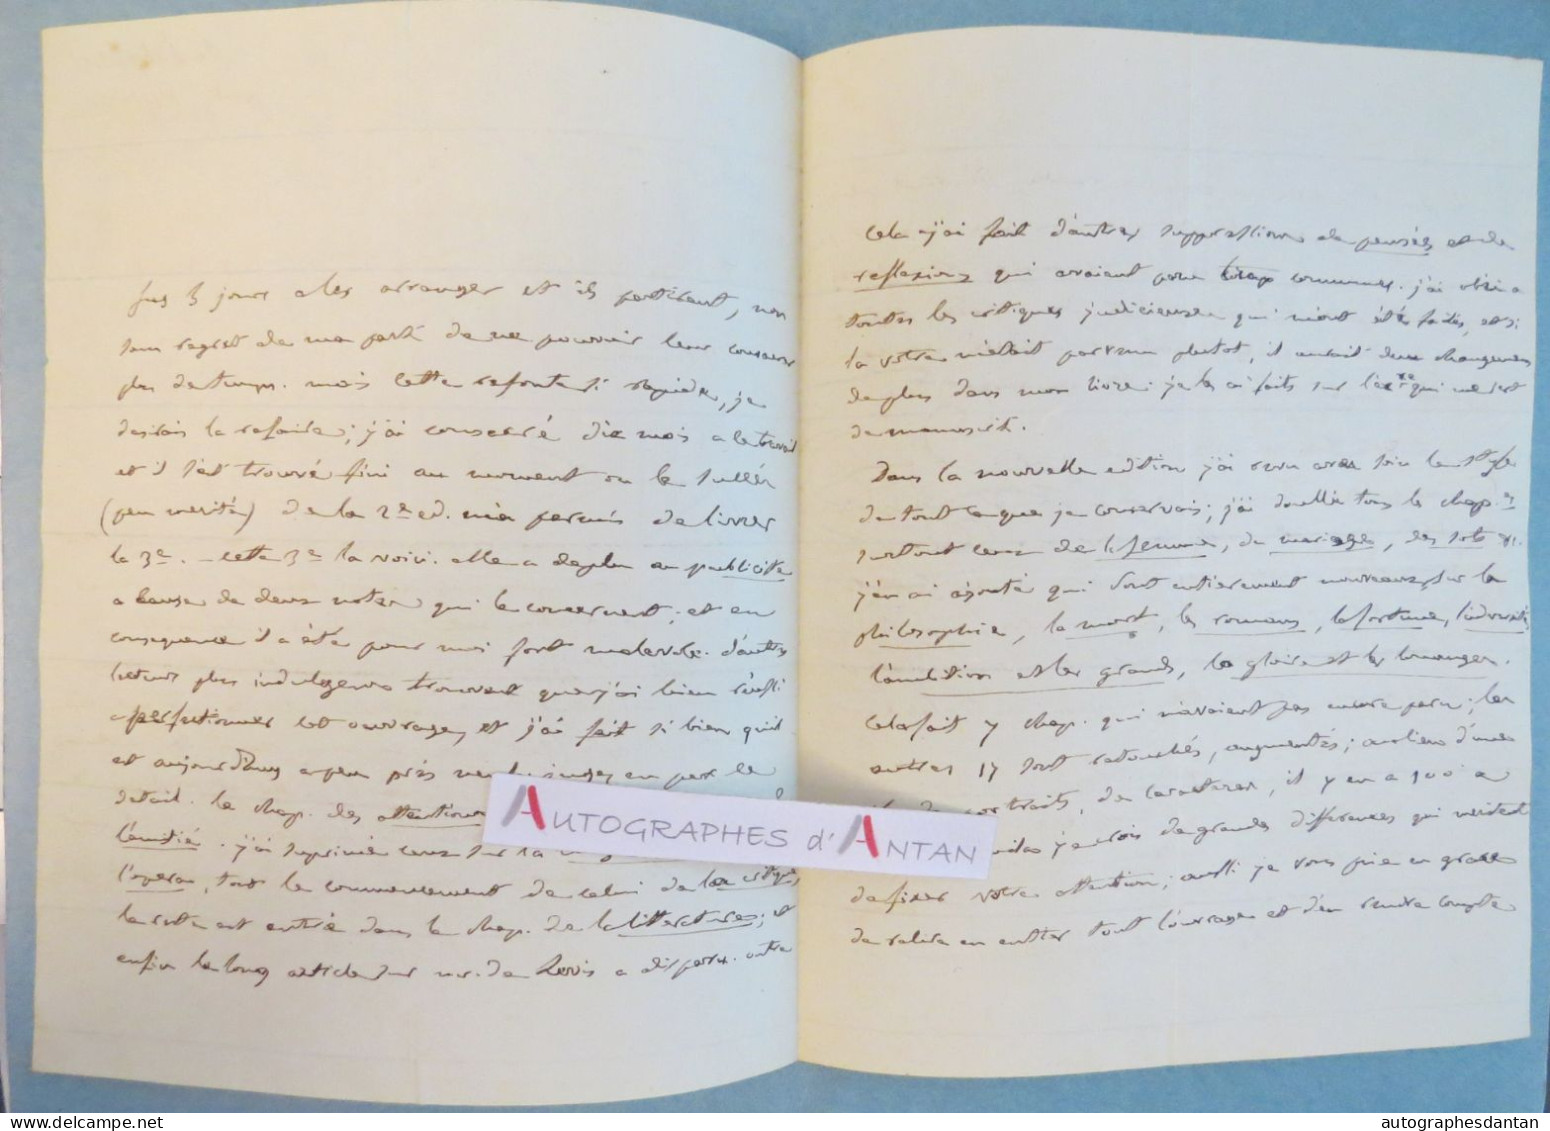 fus 3 jours a les arranger et ils partirent, non
sans regret de ma part de ne pouvoir leur consacrer
plus de temps. mais cette refonte si rapide, je
desirais la refaire; j'ai consacré dix mois a ce travail
et il s'est trouvé fini au moment ou le succès
(peu merité) de la 2e ed. m'a permis de livrer
la 3e. – cette 3e la voici. elle a deplu en publicité
a cause de deux notes qui le concernent; et en
consequence il a été pour moi fort malevole. d'autres
lecteurs plus indulgens trouvent que j'ai bien réussi
a perfectionner cet ouvrage, et j'ai fait si bien qu'il
est aujourd'hui a peu près neuf. jugez en par le
detail. le chap. des attentions
l'amitié. j'ai supprimé ceux sur la
l'opera, tout le commencement de celui de la critique,
le reste est entré dans le chap. de la litterature; et
enfin le long article sur mr. de Levis a disparu. outre
cela j'ai fait d'autres suppressions de pensées et de
reflexions qui avaient paru trop communes. j'ai obéi a
toutes les critiques judicieuses qui m'ont été faites, et si
la votre m'etait parvenu plutot, il aurait deux changemens
de plus dans mon livre: je les ai faits sur l'exre qui me sert
de manuscrit.
Dans la nouvelle edition j'ai revu avec soin le style
de tout ce que je conservais; j'ai doublé tous les chap.es
surtout ceux de la femme, du mariage, des sots
j'en ai ajouté qui sont entierement nouveaux, sur la
philosophie, la mort, les romans, la fortune, l'adversité,
l'ambition et les grands, la gloire et les louanges.
cela fait 7 chap. qui n'avaient pas encore paru; les
autres 17 sont retouchés, augmentés; au lieu d'une
portraits, de caracteres, il y en a 100 a
je crois de grandes differences qui meritent
de fixer votre attention; aussi je vous prie en grace
de relire en entier tout l'ouvrage et d'en rendre compte
AUTOGRAPHES d'ANTAN
autographesdantan